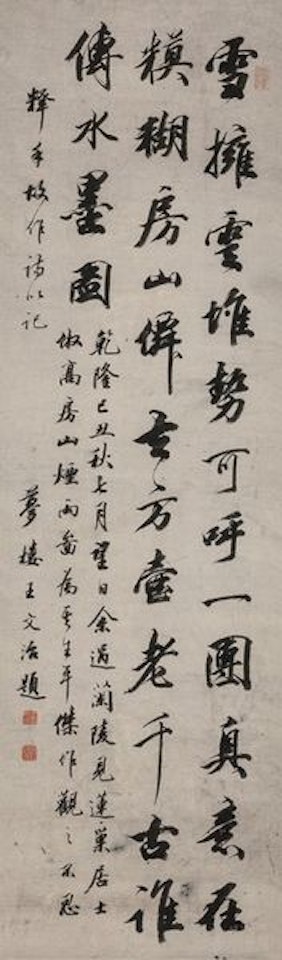 雪擁雲堆勢可呼一團真意在
糢糊房山僊去方壺老千古誰
傳水墨圖
乾隆己丑秋七月望日余過蘭陵見蓮巢居士
倣高房山煙雨畵為其生平傑作觀之不忍
釋手故作詩以記
夢樓王文治題